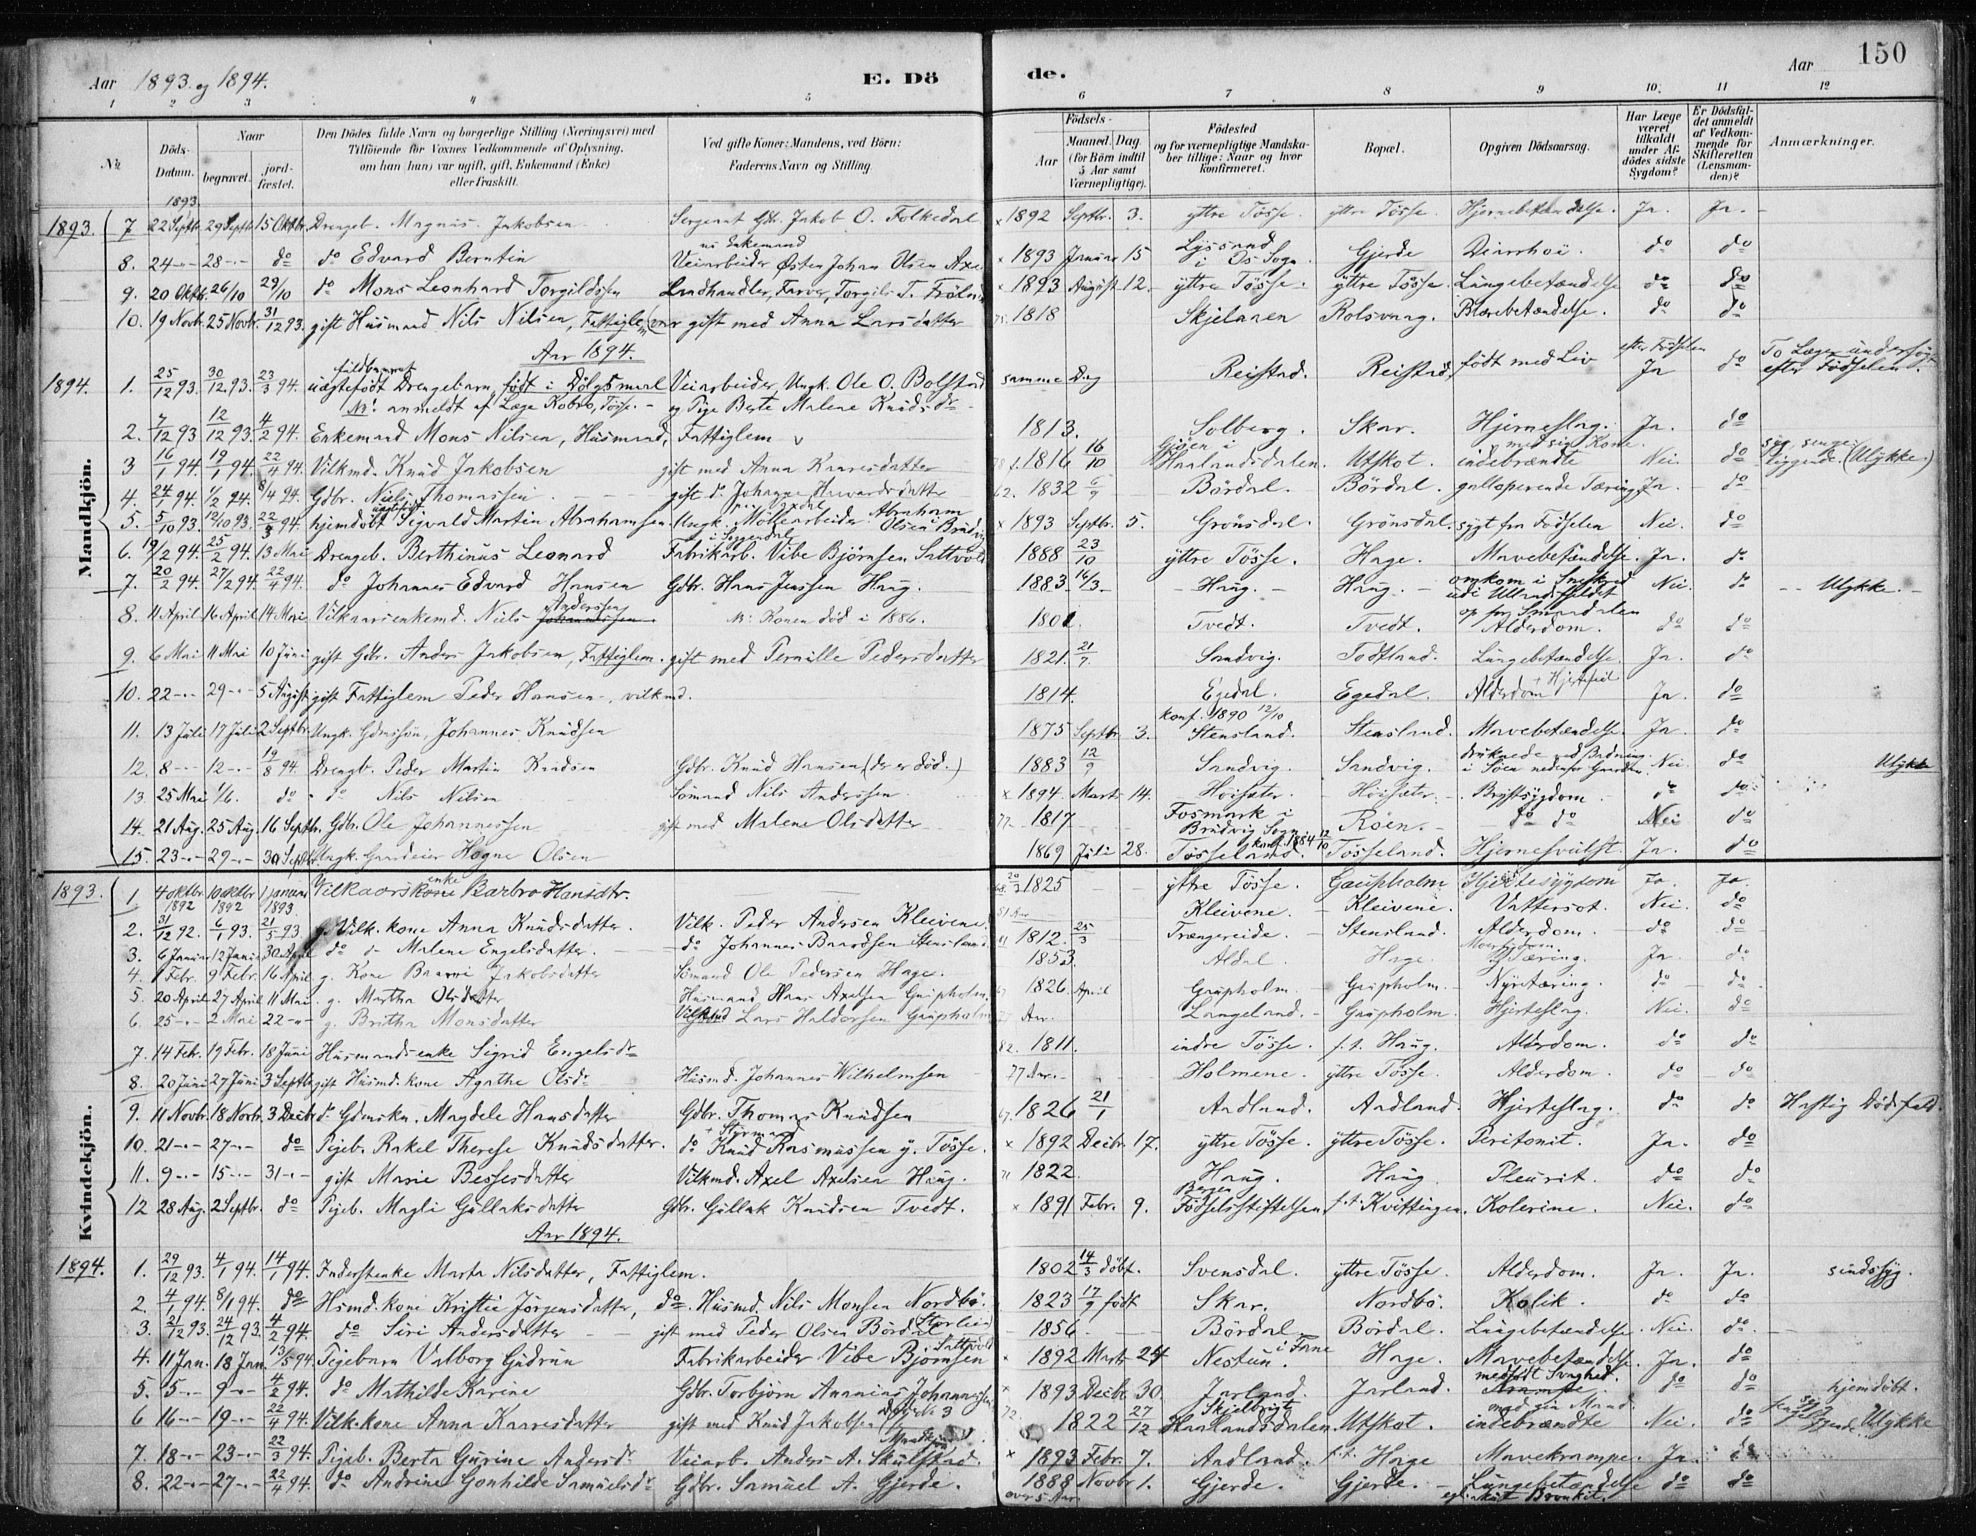 Aar 1893 og 1894. E. Dö de. Aar 150
1 2 3 4 5 6 7 8 9 10. 11 12
№ Döds-Datum. Naar begravet. jord-fæstet. Den Dödes fulde Navn og borgerlige Stilling (Næringsvei) med Tilföiende för Voxnes Vedkommende af Oplysning, om han (hun) var ugift, gift, Enkemand (Enke) eller fraskilt. Ved gifte Koner: Mandens, ved Börn: Faderens Navn og Stilling. Födsels- Aar Maaned. Dag (for Börn indtil 5 Aar samt Værnepligtige). Födested og for værnepligtige Mandskaber tillige: Naar og hvor konfirmeret. Bopæl. Opgiven Dödsaarsag. Har Læge været tilkaldt under Afdödes sidste Sygdom? Er Dödsfaldet anmeldt af Vedkommende for Skifteretten (Lensmanden)? Anmærkninger.
1893.
Mandkjön.
1893. 7 22 Septbr. 29 Septbr. 15 Oktbr. Drengeb. Magnus Jakobsen Sergeant Gbr. Jakob O. Folkedal × 1892 Septbr. 3. yttre Tösse. yttre Tösse. Hjernebetændelse. Ja. Ja.
8. 24 - 28 - do do Edvard Berntin nu Enkemand Veiarbeider Östen Johan Olsen Axe × 1893 Januar 15 Lyssand i Os Sogn. Gjerde Diarrhoi. do do
9. 20 Oktb. 26/10 29/10 do Mons Leonhard Torgildsen Landhandler, Farver, Torgils T. × 1893 August 12. yttre Tösse. yttre Tösse. Lungebetændelse do do
10. 19 Novb. 25 Novb. 31/12 93. gift Husmand Nils Nilsen, Fattiglem gift med Anna Larsdatter 75. 1818 Skjelanen Rolsvaag. Blærebetændelse. do do
Aar 1894.
1894. 1. 25/12 93. 30/12 93. 23/3 94. fuldbaaret uægtefödt Drengebarn, födt i Dölgsmaal Veiarbeider, Ungk. Ole O. Bolstad samme Dag Reistad. Reistad. födt med Liv efter Födselen Ja do To Læger undersögt efter Födselen.
NB! anmeldt af Læge Kobro, Tösse. - og Pige Berte Malene Knudsdr
2. 7/12 93 12/12 93. 4/2 94. Enkemand Mons Nilsen, Husmand, Fattiglem 1813. Solberg. Skar. Hjerneslag. Ja. do
3 16/1 94. 19/1 94. 22/4 94. Vilkmd. Knud Jakobsen gift med Anna Kaaresdatter 78 f. 1816 16/10 Gjöen i Haalandsdalen. Utskot. med sin Kone indebrændte Nei do syg, senge-liggende. (Ulykke.)
4. 24/1 94. 1/2 94. 8/4 94. Gbr. Niels Thomassen gift d. Johanne Haavardsdatter 62. 1832 6/9 Bördal. Bördal. galloperende Tæring. Ja. do
5. 5/10 93. 12/10 93. 22/3 94. hjemdöbt uægtefödt Sigvald Martin Abrahamsen Ungk. Möllearbeider Abraham Olsen × 1893 Septbr. 5. Grönsdal. Grönsdal. sygt fra Födselen Nei. do
6. 19/2 94. 25/2 94. 13 Mai Drengeb. Berthinus Leonard Fabrikarb. Vibe Björnsen Sattvold 1888 23/10 yttre Tösse. Hage. Mavebetændelse. Ja. do
7. 20/2 94. 27/2 94. 22/4 94. do Johannes Edvard Hansen Gdbr. Hans Jenssen Haug. 1883. 14/3. Haug. - Haug. - omkom i Sneskred udi Ulland op for Smaadalen Nei. do - Ulykke. -
8. 11 April 16 April 14 Mai Vilkaarsenkemd. Niels Anderssen NB: Konen död i 1886. 1801. Tvedt. Tvedt. Alderdom. do do
9. 6 Mai 11 Mai 10 Juni gift Gbr. Anders Jakobsen, Fattiglem. gift med Pernille Pedersdatter 1821. 21/7. Sandvig. Todtland. Lungebetændelse. + Hjertefeil Ja. do
10. 22 - 29 - 5 August gift Fattiglem Peder Hansen -, vilkmd. 1814. Egedal. Egedal. Alderdom Ja. do
11. 13 Juli 17 Juli 2 Septbr. Ungk. Gdmsön, Johannes Knudsen 1875 Septbr. 3. konf. 1890 12/10 Stensland. Stensland. Mavebetændelse. Ja. do
12. 8 - 12 - 19/8 94. Drengb. Peder Martin Knudsen Gdbr. Knud Hansen (der er död.) 1883 12/9 Sandvig. Sandvig. druknede ved Badning i Söen nedenfor Gaarden. Nei do Ulykke
13. 25 Mai 1/6. do do Nils Nilsen Sömand Nils Anderssen × 1894. Marts 14. Höisæter. Höisæter. Brystsygdom. do do
14. 21 Aug. 25 Aug. 16 Septbr. Gdbr. Ole Johannessen gift med Malene Olsdatter 77. 1817 Fosmark i Brudvig Sogn Röen. do do Nei do
15. 23 - 29 - 30 Septbr. Ungk. Gaardeier Hogne Olsen 1869 Juli 28. konf. 1884 12/10 Tösseland. Tösseland. Hjernesvulst. Ja. do
Kvindekjön.
1893. 1 4 oktbr. 1892 10 oktbr 1892 1 januar 1893 Vilkaarskone enke Barbro Hansdtr. 68. 20/3 1825 yttre Tösse. Gaupholm Hjertesygdom Ja. Ja.
2. 31/12 92. 6/1 93. 21/5 93 g. Vilk. kone Anna Knudsdatter. Vilk. Peder Andersen Kleivene 51 Aar Kleivene. - Kleivene. Vattersot. Nei. do
3. 6 Januar 12 Janr. 30 April do Malene Engelsdatter. do Johannes Baardsen Stensland. 1812. 25/3 Trængereide. - Stensland. Alderdom. do do
4. 1 Febr. 9 Febr. 16 April g. Kone Jakobsdatter Sömand Ole Pedersen Hage. 1853. Aldal. Hage. Tæring. Ja. do
5. 20 April 27 April 11 Mai. g. Martha Olsdatter Husmand Hans Axelsen Gaupholm. 1826. April Gaupholm. Gaupholm. Nyretæring. do do
6. 25 - 2 Mai 22 - g. Britha Monsdatter Vilkmd Lars Haldorsen Gaupholm Aar. Langeland. Gaupholm. Hjerteslag. Nei. do
7. 14 Febr. 19 Febr. 18 Juni Husmandsenke Sigrid Engelsdr 82. 1811. indre Tösse. f. t. Haug. Alderdom. do do
8. 20 Juni 27 Juni 3 Septbr. gift Husmd. kone Agathe Olsdr Husmd. Johannes Wilhelmsen 77 Aar. - Holmene. yttre Tösse. Alderdom. do do
9. 11 Novbr. 18 Novbr. 3 Decbr do Gdmskn. Magdele Hansdatter Gdbr. Thomas Knudsen 67. 1826 21/1 Aadland. Aadland. Hjerteslag. do do Hastig Dödsfald.
10. 21 - 27 - do Pigeb. Rakel Therese Knudsdatter. + Styrmand do Knud Rasmussen y. Tösse. × 1892 Decbr. 17. yttre Tösse. yttre Tösse. Peritonit. Ja. do
11. 9 - 15 - 31 - gift Marie Bessesdatter Vilkmd. Axel Axelsen Haug. 71 1822. Haug. Haug. Pleurit. do do
12 28 Aug. 2 Septbr. do Pigeb. Magli Gullaksdatter Gdbr. Gullak Knudsen Tvedt. × 1891 Febr. 9. Bergen Födselsstiftelsen f. t. Kvittingen. Kolerine. Nei. do
Aar 1894.
1894. 1. 29/12 93. 4/1 94. 14/1 94. Inderstenke Marta Nilsdatter, Fattiglem. 1802 14/3 döbt. Svensdal. yttre Tösse. Alderdom. Ja. Ja. sindssyg.
2. 4/1 94. 8/1 94. do Hsmd. kone Kristie Jörgensdatter, do. Husmd. Nils Monsen Nordbö. 1823 17/9 födt Skar. Nordbö. Kolik. do do
3. 21/12 93. 24/12 93. 4/2 94. do Siri Andersdatter gift med Peder Olsen Bördal 1856 Bördal. Bördal. Lungebetændelse. Nei. do
4. 11 Jan. 18 Jan. 13/5 94. Pigebarn Valborg Gudrun Fabrikarbeider Vibe Björnsen Sattvold × 1892 Marts 24 Nestun. i Fane Hage. Mavebetændelse. Ja. do
5. 5 - 9 - 4/2 94. do Mathilde Karine Gdbr. Torbjörn Ananias Johannessen × 1893. Decbr. 30. Jarland. Jarland. medfödt Svaghed. do do hjemdöbt.
6 16 - 19 - 22/4 94. Vilk.kone Anna Kaaresdatter gift med Knud Jakobsen № 3 72. 1822 27/12 Skjelbreit Haalandsdalen Utskot. med sin Mand. indebrændte Nei. do Ulykke
7. 18 - 23 - 22/3 94. Pigeb. Berta Gurine Andersdr Veiarb. Anders A. Skulstad. × 1893 Febr. 7. Aadland. f. t. Hage Mavekrampe. Ja. do
8. 22 - 27 - 22/4 94. do Andrine Gonhilde Samuelsdr Gdbr. Samuel A. Gjerde. 1888 Novbr 1. over 5 Aar Gjerde. Gjerde. - Lungebetændelse akut Bronkit. do do